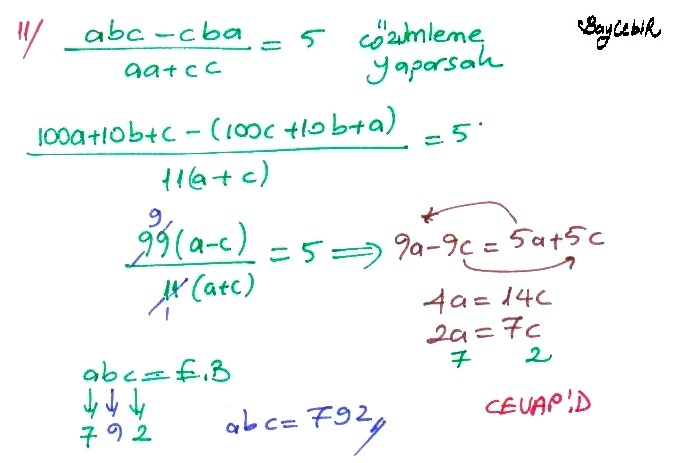 11/ abc - cba / aa + cc = 5 çözümleme yaparsak
Baycebir
100a+10b+c - (100c+10b+a) / 11(a+c) = 5
9
99(a-c) / 11(a+c) = 5 ⟹ 9a-9c = 5a+5c
1
4a = 14c
2a = 7c
7 2
abc = E.B
↓ ↓ ↓
7 9 2
abc = 792
CEVAP:D